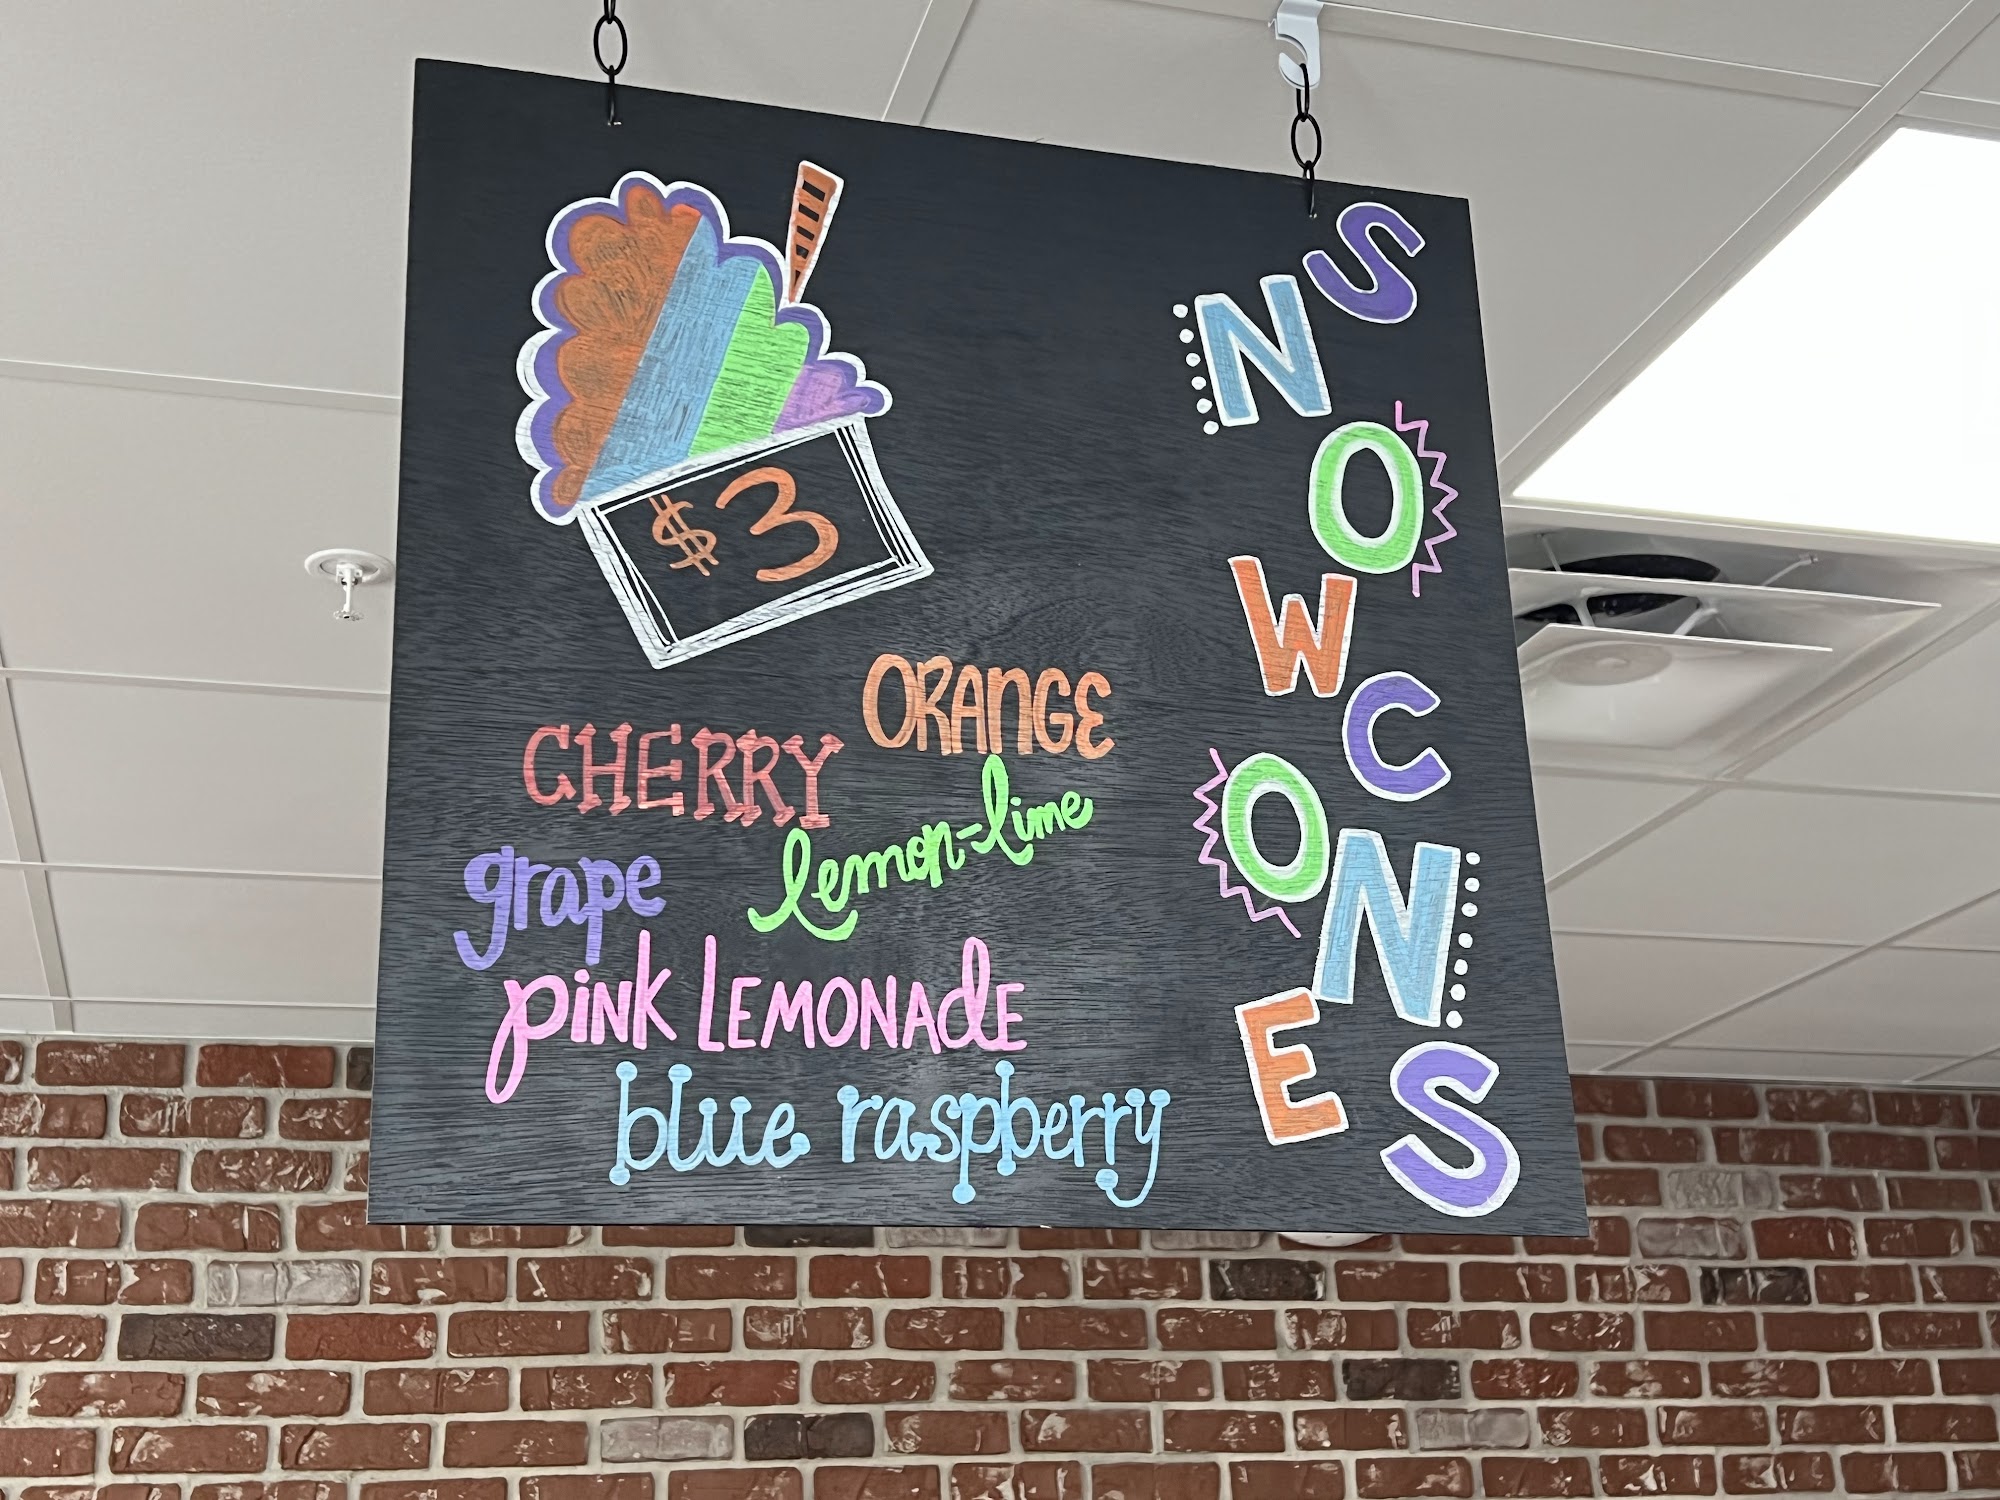 $3
ORANGE
CHERRY
lemon-lime
grape
pink LEMONAdE
blue raspberry
SNOW
CONES